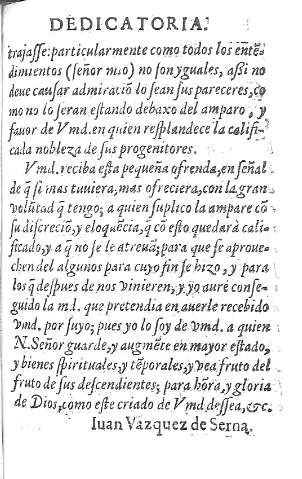 DEDICATORIA.
trajasse: particularmente como todos los entẽ-
dimientos (señor mio) no son yguales, assi no
deue causar admiraciõ lo sean sus pareceres, co
mo no lo seran estando debaxo del amparo, y
fauor de Vmd. en quien resplandece la calisi-
cada nobleza de sus progenitores.
Vmd. reciba esta pequeña ofrenda, en señal
de q̃ si mas tuuiera, mas ofreciera, con la gran
volũtad q̃ tengo; a quien suplico la ampare cõ
su discreciõ, y eloquẽcia, q̃ cõ esto quedarà cali-
ficado, y a q̃ no se le atreuã; para que se aproue-
chen del algunos para cuyo fin se hizo, y para
los q̃ despues de nos vinieren; y yo aurè conse-
guido la m.d. que pretendia en auerle recebido
vmd. por suyo; pues yo lo soy de vmd. a quien
N. Señor guarde, y augmẽte en mayor estado,
y bienes spirituales, y tẽporales, y vea fruto del
fruto de sus descendientes; para hõra, y gloria
de Dios, como este criado de Vmd dessea, &c.
Iuan Vazquez de Serna.